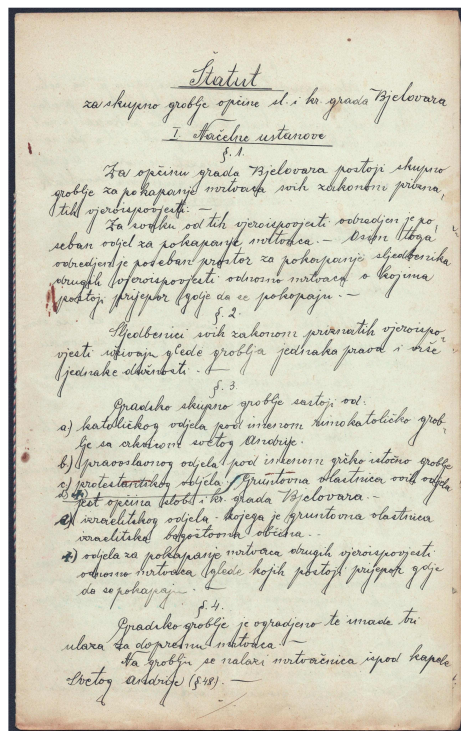 Štatut
za skupno groblje općine sl. i kr. grada Bjelovara
I. Načelne ustanove
§. 1.
Za općinu grada Bjelovara postoji skupno
groblje za pokapanje mrtvaca svih zakonom prizna,
tih vjeroispovjesti. —
Za svaku od tih vjeroispovjesti odredjen je po,
seban odjel za pokapanje mrtvaca. — Osim toga
odredjen je poseban prostor za pokapanje sljedbenika
drugih vjeroispovjesti odnosno mrtvaca o kojima
postoji prijepor gdje da se pokopaju. —
§. 2.
Sljedbenici svih zakonom priznatih vjeroispo-
vjesti uživaju glede groblja jednaka prava i vrše
jednake dužnosti. —
§. 3.
Gradsko skupno groblje sastoji od:
a) katoličkog odjela pod imenom rimokatoličko grob-
lje sa crkvicom svetog Andrije.
b) pravoslavnog odjela pod imenom grčko istočno groblje
c) protestantskog odjela. Gruntovna vlastnica ovih odjela
jest općina slob. i kr. grada Bjelovara. —
izraelitskog odjela kojega je gruntovna vlastnica
izraelitska bogoštovna općina. —
odjela za pokapanje mrtvaca drugih vjeroispovjesti
odnosno mrtvaca glede kojih postoji prijepor gdje
da se pokapaju. —
§. 4.
Gradsko groblje je ogradjeno te imade tri
ulaza za dopremu mrtvaca. —
Na groblju se nalazi mrtvačnica ispod kapele
Svetog Andrije (§ 48). —